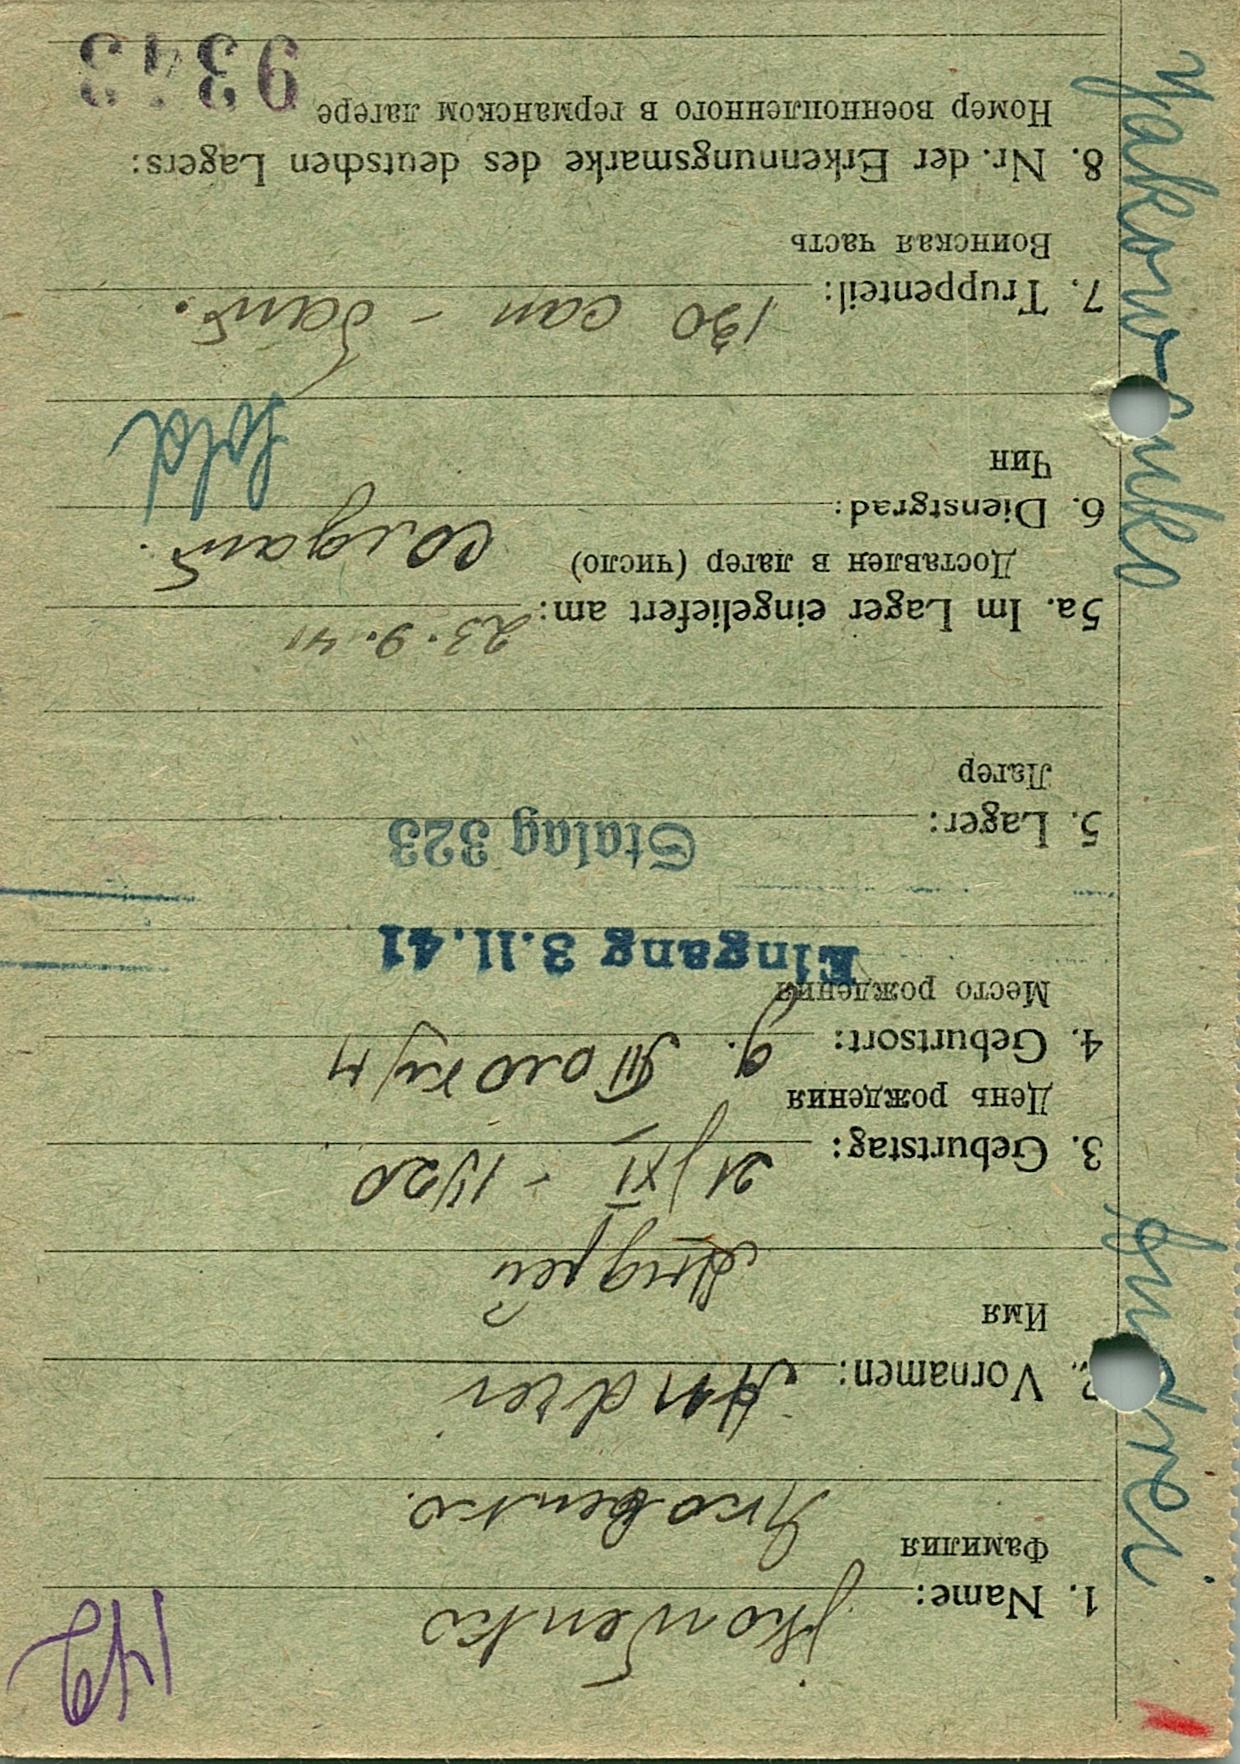 142
1. Name: jkowenko
Фамилия Яковенко.
2. Vornamen: Andrei
Имя Андрей
3. Geburtstag: 21/XI - 1920
День рождения
4. Geburtsort: g.
Место рождения
Eingang 3.11.41
Stalag 323
5. Lager:
Лагер
5a. Im Lager eingeliefert am: 23.9.41
Доставлен в лагер (число)
6. Dienstgrad: солдат.
Чин Sold
7. Truppenteil: 130 сап - бат.
Воинская часть
8. Nr. der Erkennungsmarke des deutschen Lagers:
Номер военнопленного в германском лагере 9343
Yakowenko Andrei